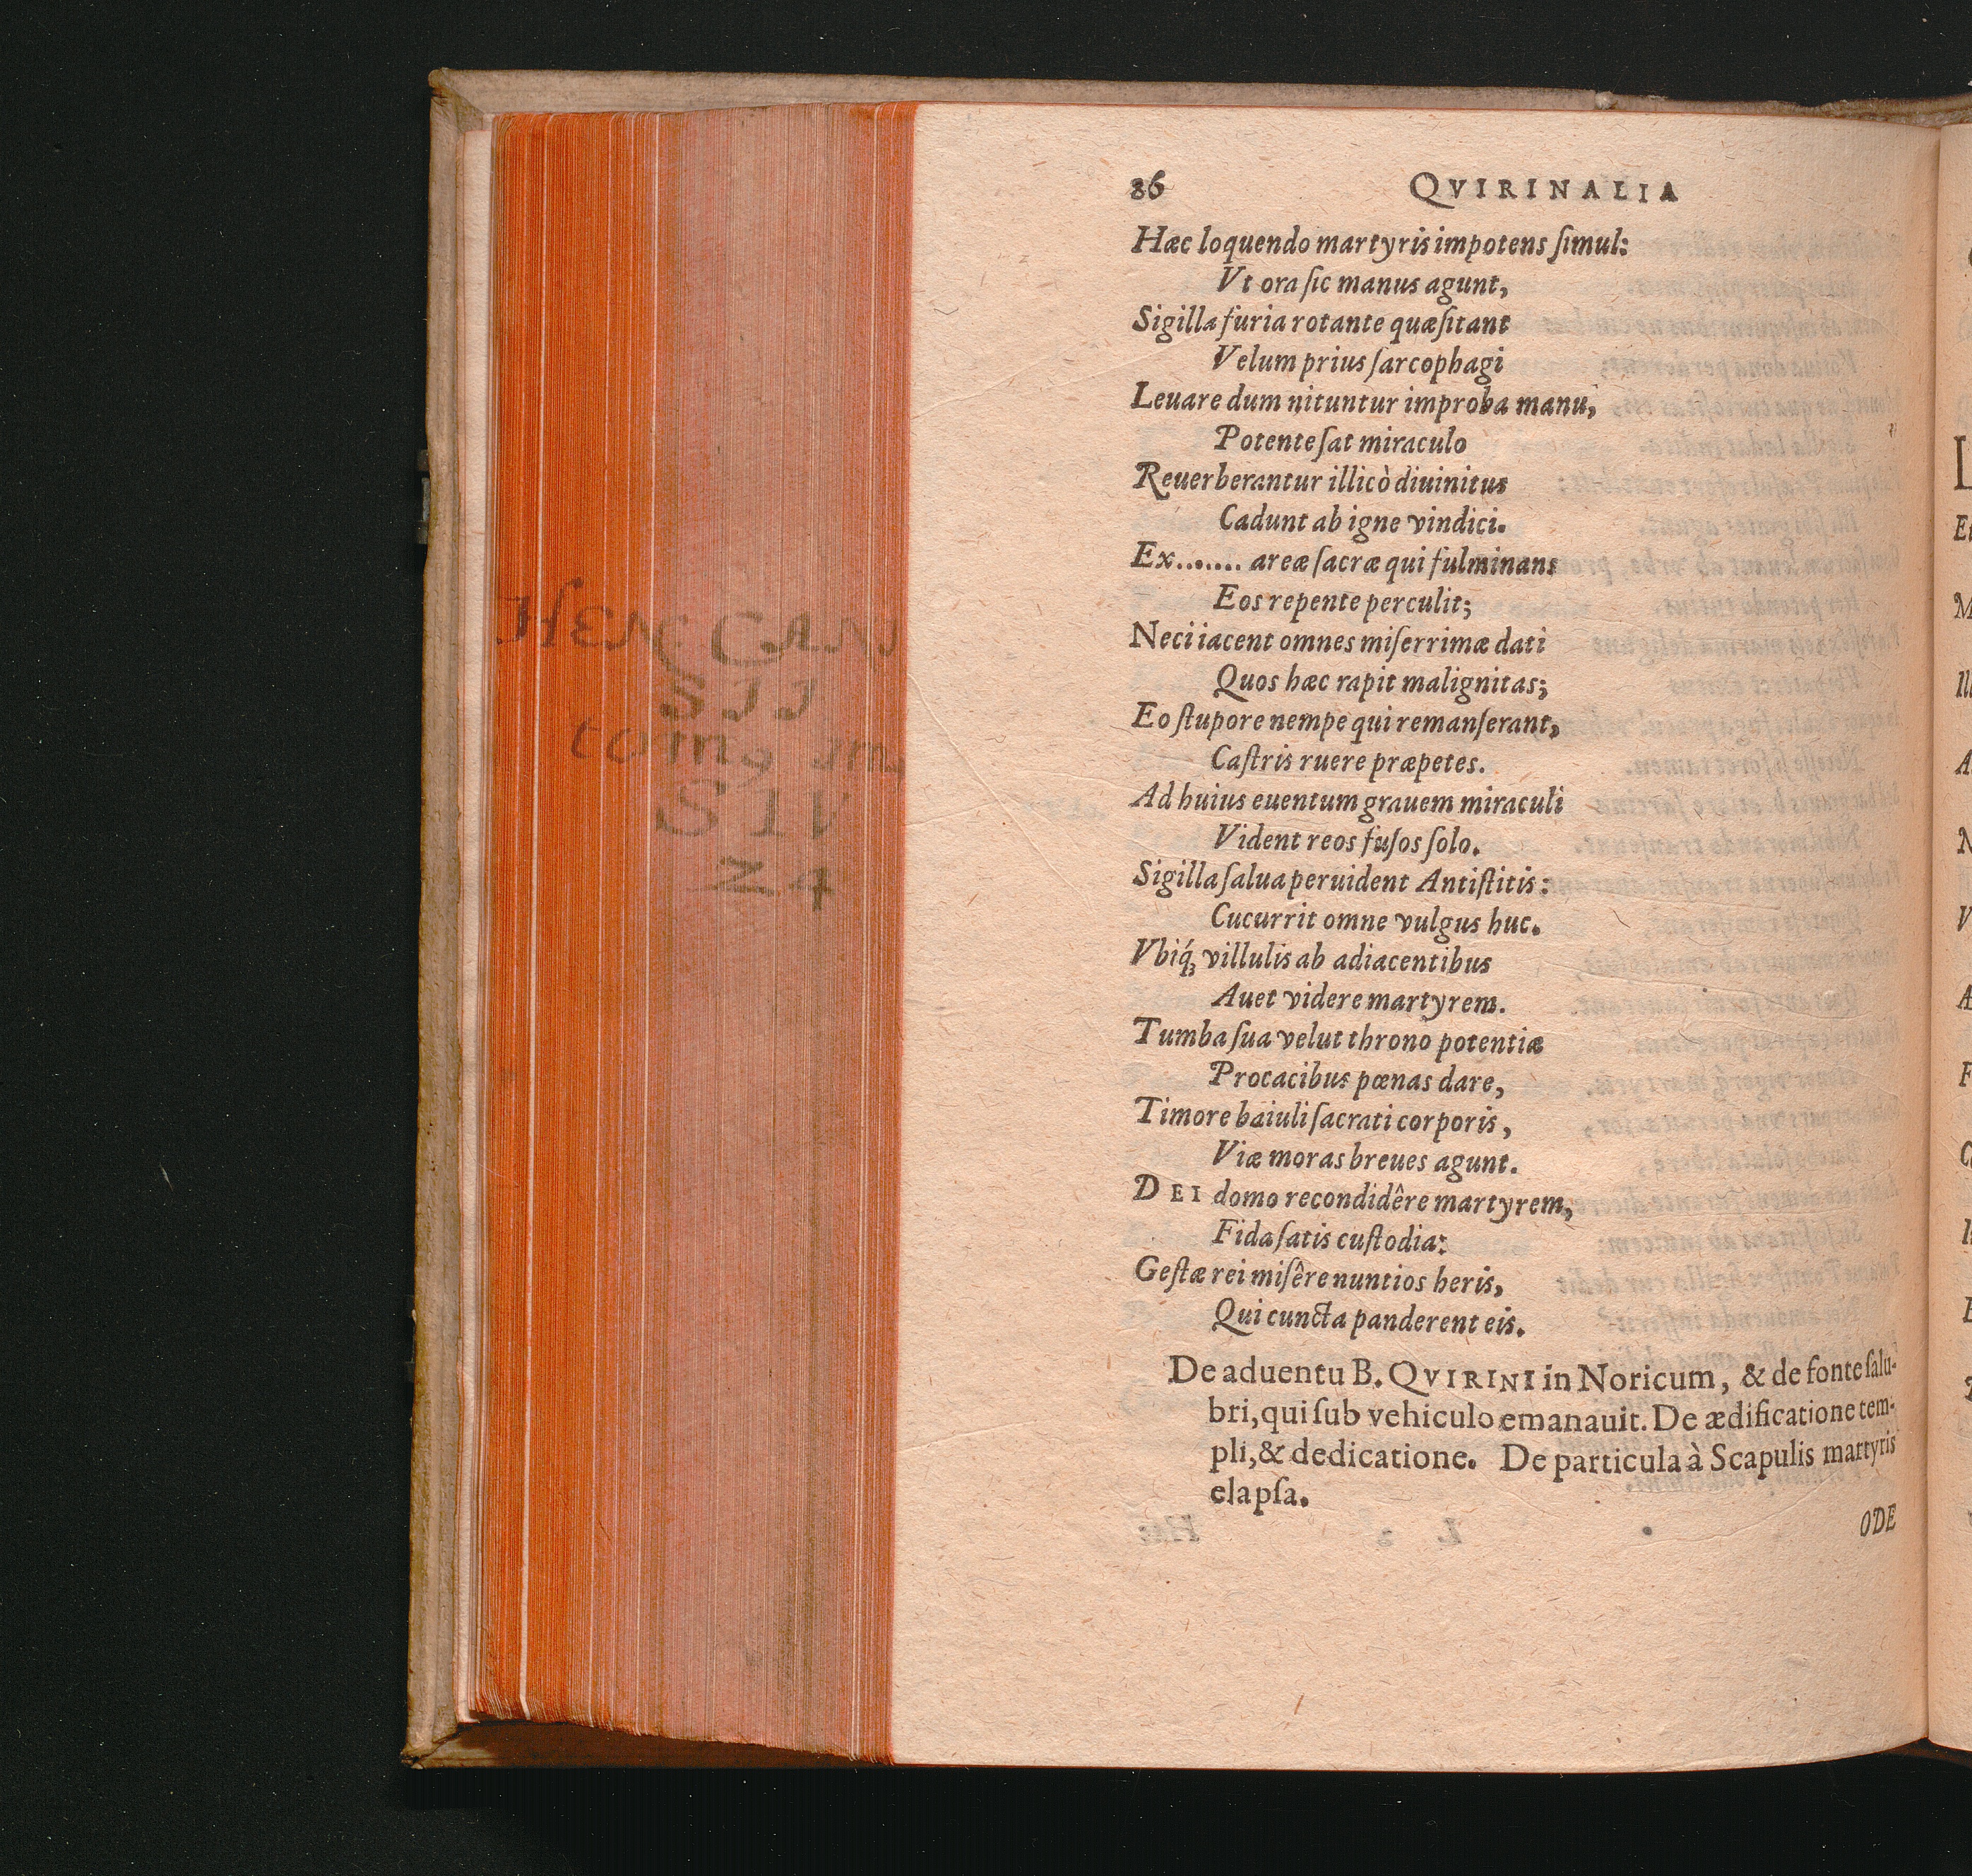 86 QVIRINALIA
Hæc loquendo martyris impotens ſimul:
Vt ora ſic manus agunt,
Sigilla furia rotante quæſitant
Velum prius ſarcophagi
Leuare dum nituntur improba manu,
Potente ſat miraculo
Reuerberantur illicò diuinitus
Cadunt ab igne vindici.
Ex....... areæ ſacræ qui fulminans
Eos repente perculit;
Neci iacent omnes miſerrimæ dati
Quos hæc rapit malignitas;
Eo ſtupore nempe qui remanſerant,
Caſtris ruere præpetes.
Ad huius euentum grauem miraculi
Vident reos fuſos ſolo.
Sigilla ſalua peruident Antiſtitis:
Cucurrit omne vulgus huc.
Vbiq́ꝫ villulis ab adiacentibus
Auet videre martyrem.
Tumba ſua velut throno potentiæ
Procacibus pœnas dare,
Timore baiuli ſacrati corporis,
Viæ moras breues agunt.
DEI domo recondidêre martyrem,
Fida ſatis cuſtodia:
Geſtæ rei miſêre nuntios heris,
Qui cuncta panderent eis.
De aduentu B. QVIRINI in Noricum, & de fonte ſalu-
bri, qui ſub vehiculo emanauit. De ædificatione tem-
pli, & dedicatione. De particula à Scapulis martyris
elapſa.
ODE
HEN CAN
SII
S IV
24